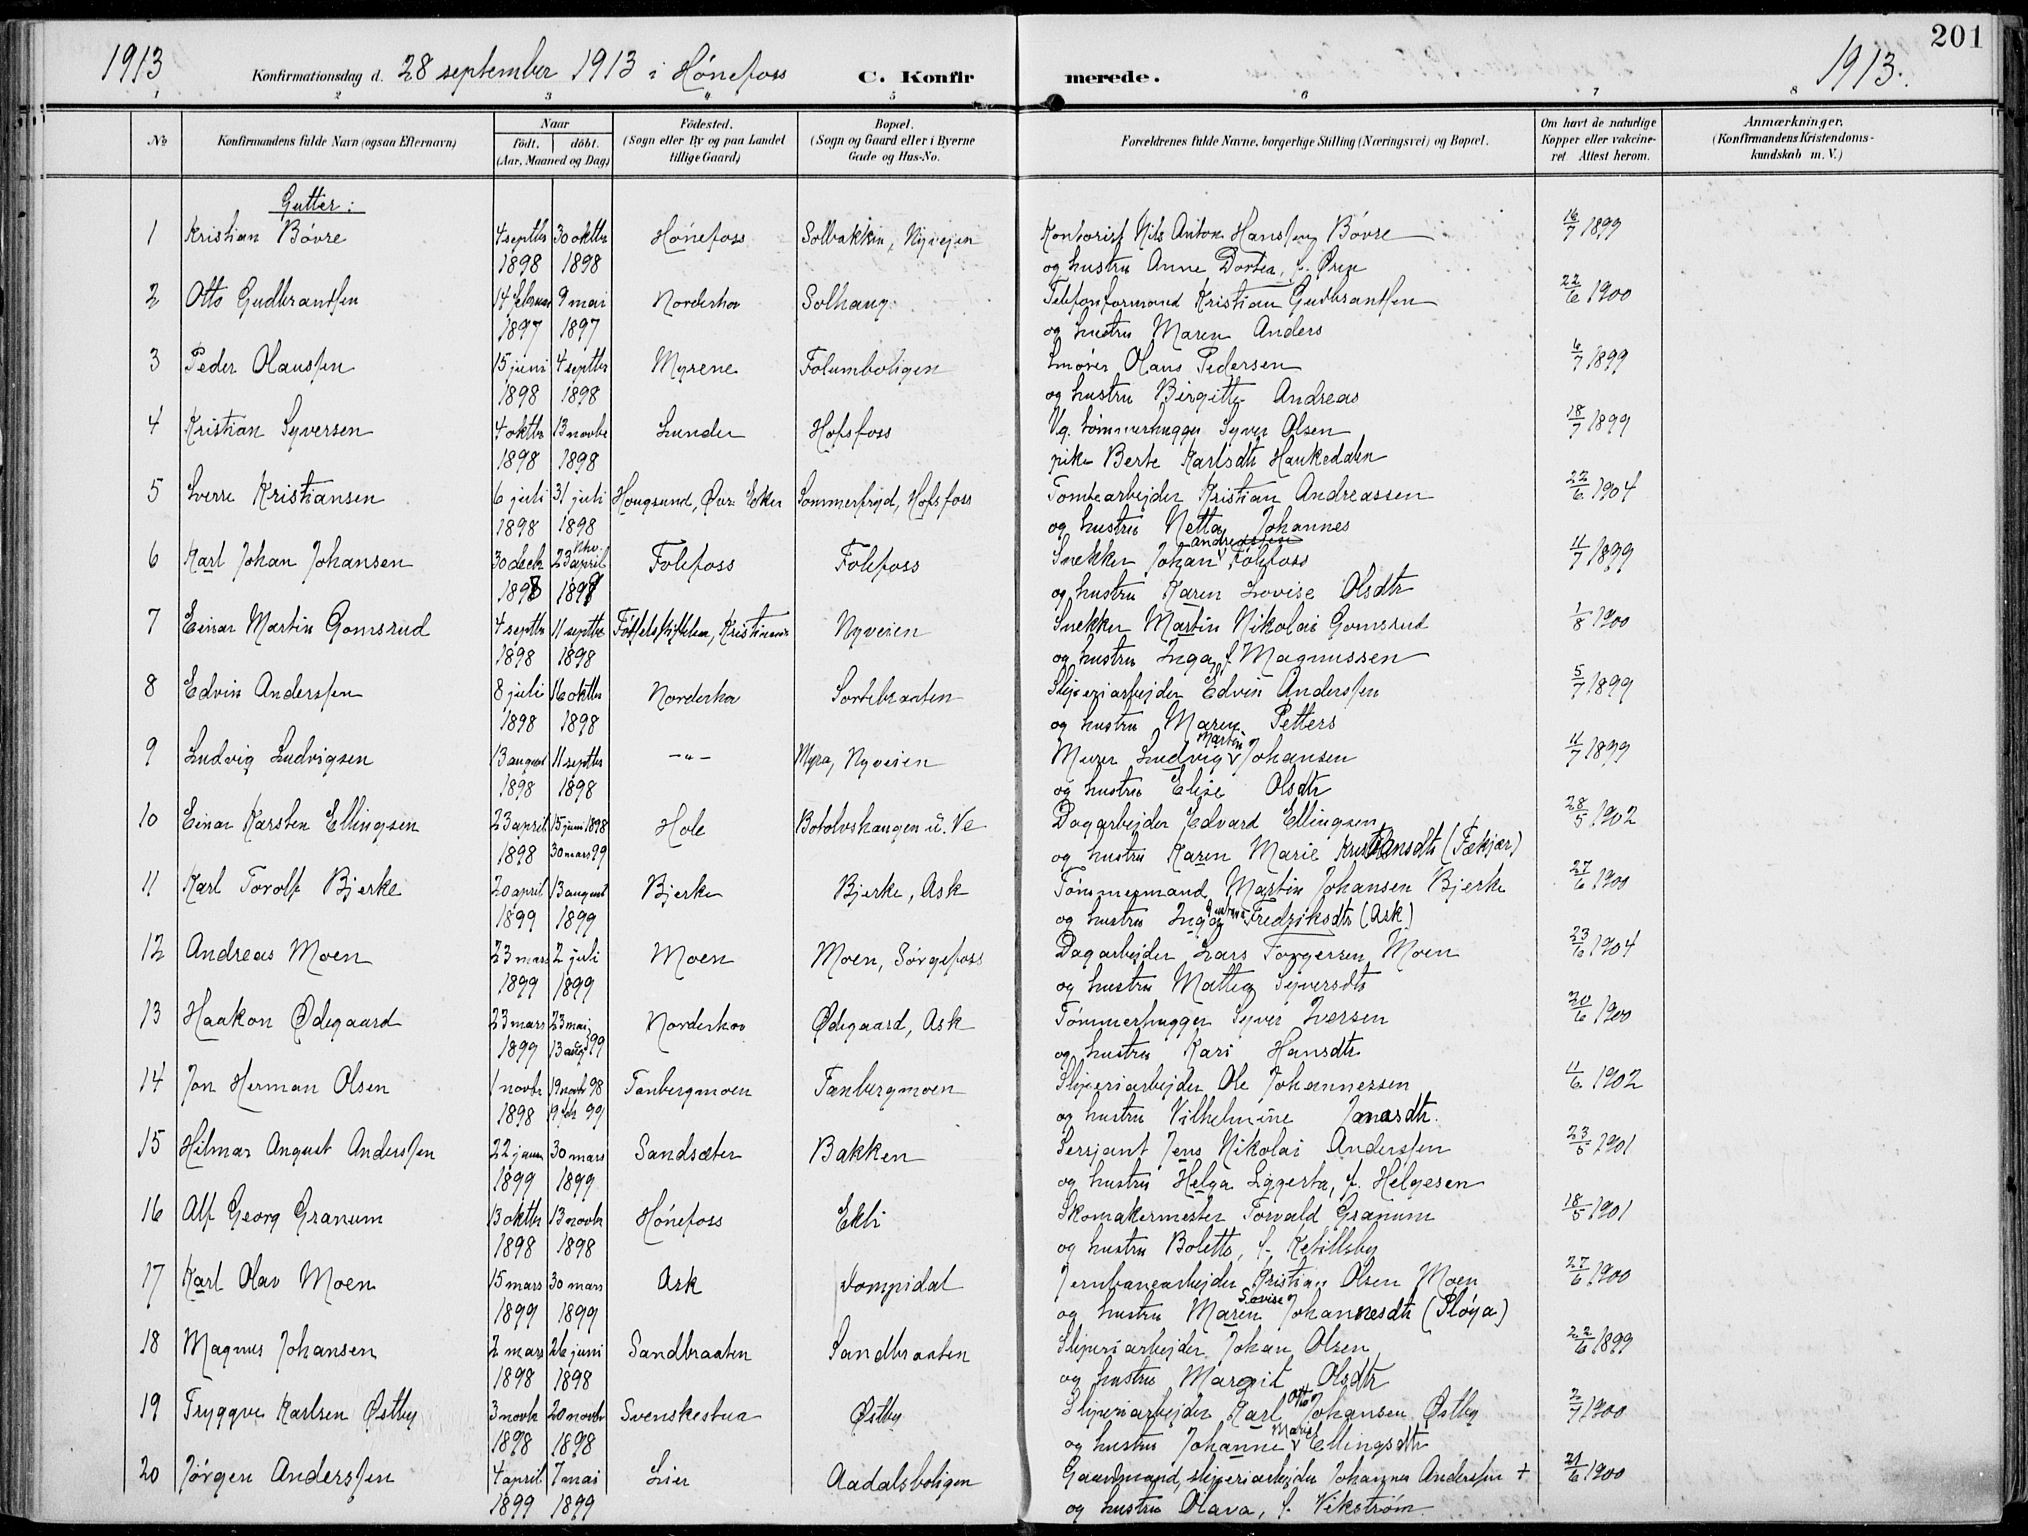 201
1913 Konfirmationsdag d. 28 september 1913 i Hónefoss C. Konfirmerede. 1913.
1 2 3 4 5 6 7 8
No Konfirmandens fulde Navn (ogsaa Efternavn) Naar født. døbt. (Aar, Maaned og Dag) Födested. (Sogn eller By og paa Landet tillige Gaard) Bopæl. (Sogn og Gaard eller i Byerne Gade og Hus-No. Forældrenes fulde Navne, borgerlige Stilling (Næringsvei) og Bopæl. Om havt de naturlige Kopper eller vakcineret Attest herom. Anmærkninger. (Konfirmandens Kristendomskundskab m. V.)
Gutter:
1 Kristian Bóvre 4 septbr 30 oktbr Hónefoss Solbakken, Nyvejen Kontorist Nils Anton Hanssen Bóvre 16/7 1899
1898 1898 og hustru Anne Dortea, f.
2 Otto Gudbrandssen 14 februar 9 mai Norderhov Solhaug Telefonformand Kristian Gudbrandssen 22/6 1900
1897 1897 og hustru Maren Anders
3 Peder Olaussen 15 juni 4 septbr Myrene Folumboligen Smører Olaus Pedersen 6/7 1899
1898 1898 og hustru Birgitte Andreas
4 Kristian Syversen 4 oktbr 13 novbr Lunder Hofsfoss Ug. tømmerhugger Syver Olsen 18/7 1899
1898 1898 pike Berte Karlsdtr Haukedalen
5 Sverre Kristiansen 6 juli 31 juli Hougsund, Øvr. Eker Sommerfryd, Hofsfoss Tomtearbejder Kristian Andreassen 22/6 1904
1898 1898 og hustru Netta Johannes
6 Karl Johan Johansen 30 decbr 23 april Folefoss Folefoss Snekker Johan Andreassen Folefoss 11/7 1899
1898 1899 og hustru Karen Lovise Olsdtr
7 Einar Martin Gomsrud 4 septbr 11 septbr Fótselsstiftelsen, Kristiania Nyveien Snekker Martin Nikolai Gomsrud 1/8 1900
1898 1898 og hustru Inga, f. Magnussen
8 Edvin Anderssen 8 juli 16 oktbr Norderhov Sortebraaten Sliperiarbejder Edvin Anderssen 5/7 1899
1898 1898 og hustru Maren Petters
9 Ludvig Ludvigsen 13 august 11 septbr -"- Myra, Nyveien Murer Ludvig Martin Johansen 11/7 1899
1898 1898 og hustru Elise Olsdtr
10 Einar Karsten Ellingsen 23 april 15 juni 1898 Hole Botolvshaugen u. Ve Dagarbejder Edvard Ellingsen 28/5 1902
1898 30 mars 99 og hustru Karen Marie Kristiansdtr (Fækjær)
11 Karl Torolf Bjerke 20 april 13 august Bjerke Bjerke, Ask Tømmermand Martin Johansen Bjerke 27/6 1900
1899 1899 og hustru Inga Gustava Fredriksdtr (Ask)
12 Andreas Moen 23 mars 2 juli Moen Moen, Sørgefoss Dagarbejder Lars Torgersen Moen 23/6 1904
1899 1899 og hustru Mattea Syversdtr
13 Haakon Ødegaard 23 mars 23 mai Norderhov Ødegaard, Ask Tømmerhugger Syver Iversen 20/6 1900
1899 13 aug 99 og hustru Kari Hansdtr
14 Jon Herman Olsen 1 novbr 19 novb 98 Tanbergmoen Tanbergmoen Sliperiarbejder Ole Johannessen 11/6 1902
1898 19 feb 99 og hustru Vilhelmine Jonasdtr.
15 Hilmar August Anderssen 22 janu 30 mars Sandsæter Bakken Sersjant Jens Nikolai Anderssen 23/5 1901
1899 1899 og hustru Helga Eggerta, f. Helgesen
16 Alf Georg Granum 13 oktbr 13 novbr Hónefoss Ekli Skomakermester Torvald Granum 18/5 1901
1898 1898 og hustru Bolette, f. Ketillsby
17 Karl Olav Moen 15 mars 30 mars Ask Dompidal Jernbanearbejder Kristian Olsen Moen 27/6 1900
1899 1899 og hustru Maren Lovise Johannesdtr (Pløya)
18 Magnus Johansen 2 mars 26 juni Sandbraaten Sandbraaten Sliperiarbejder Johan Olsen 22/6 1899
1898 1898 og hustru Margit Olsdtr
19 Tryggve Karlsen Østby 3 novbr 20 novbr Svenskestua Østby Sliperiarbejder Karl Otto Johansen Østby 2/7 1900
1898 1898 og hustru Johanne Marie Ellingsdtr
20 Jórgen Anderssen 4 april 7 mai Lier Aadalsboligen Gaardmand, sliperiarbejder Johannes Anderssen + 21/6 1900
1899 1899 og hustru Olava, f. Vikstrøm.